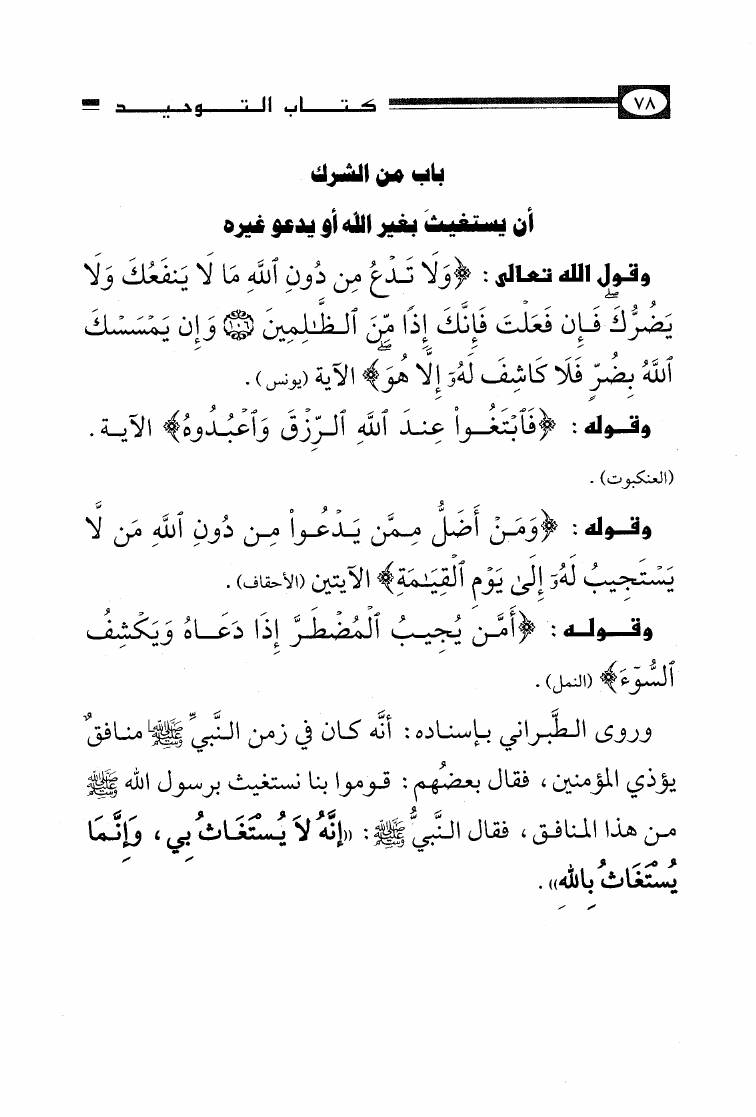 ٧٨ كتاب التوحيد
باب من الشرك
أن يستغيثَ بغير الله أو يدعو غيره
وقول الله تعالى : ﴿وَلَا تَدْعُ مِن دُونِ ٱللَّهِ مَا لَا يَنفَعُكَ وَلَا
يَضُرُّكَۖ فَإِن فَعَلْتَ فَإِنَّكَ إِذًا مِّنَ ٱلظَّـٰلِمِينَ ١٠٦ وَإِن يَمْسَسْكَ
ٱللَّهُ بِضُرٍّ فَلَا كَاشِفَ لَهُۥٓ إِلَّا هُوَۖ﴾ الآية (يونس) .
وقوله : ﴿فَٱبْتَغُوا۟ عِندَ ٱللَّهِ ٱلرِّزْقَ وَٱعْبُدُوهُ﴾ الآية .
(العنكبوت) .
وقوله : ﴿وَمَنْ أَضَلُّ مِمَّن يَدْعُوا۟ مِن دُونِ ٱللَّهِ مَن لَّا
يَسْتَجِيبُ لَهُۥٓ إِلَىٰ يَوْمِ ٱلْقِيَـٰمَةِ﴾ الآيتين (الأحقاف) .
وقوله : ﴿أَمَّن يُجِيبُ ٱلْمُضْطَرَّ إِذَا دَعَاهُ وَيَكْشِفُ
ٱلسُّوٓءَ﴾ (النمل) .
وروى الطَّبراني بإسناده : أنَّه كان في زمن النَّبيِّ ﷺ منافقٌ
يؤذي المؤمنين ، فقال بعضُهم : قوموا بنا نستغيث برسول الله ﷺ
من هذا المنافق ، فقال النَّبيُّ ﷺ : «إِنَّهُ لاَ يُسْتَغَاثُ بِي ، وَإِنَّمَا
يُسْتَغَاثُ بِاللهِ» .